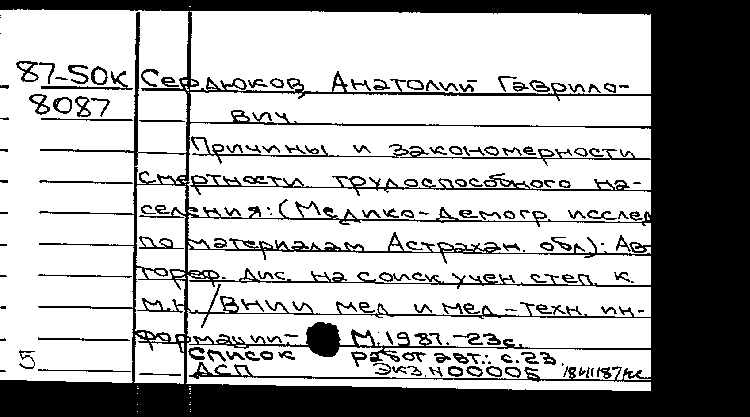 87-5ОК Сердюков, Анатолий Гаврило-
8087 вич.
Причины и закономерности
смертности трудоспособного на-
селения: (Медико-демогр. исслед
по материалам Астрахан. обл): Ав-
тореф. дис. на соиск учен. степ. к.
м.н. / ВНИИ мед. и мед.-техн. ин-
формации.- М. 1987. -23с.
Список работ авт.: с. 23.
5 ДСП Экз. N 00005